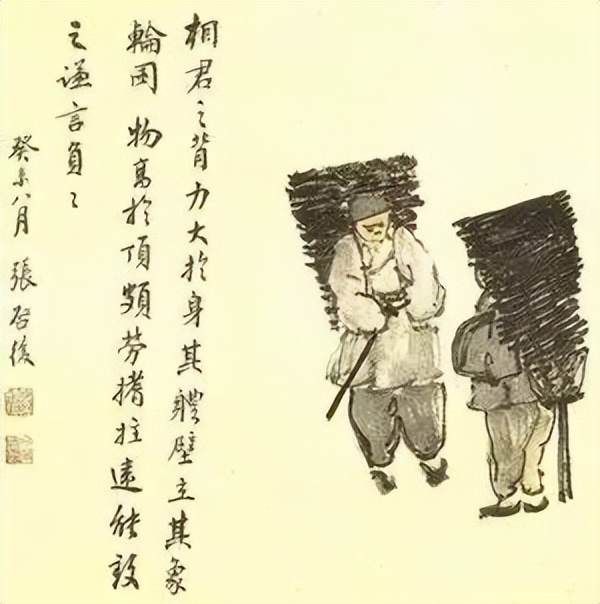 相君之背力大於身其體壁立其象
輪囷 物高於頂頗勞搘拄遠能致
之謙言負〻
癸未八月 張启後